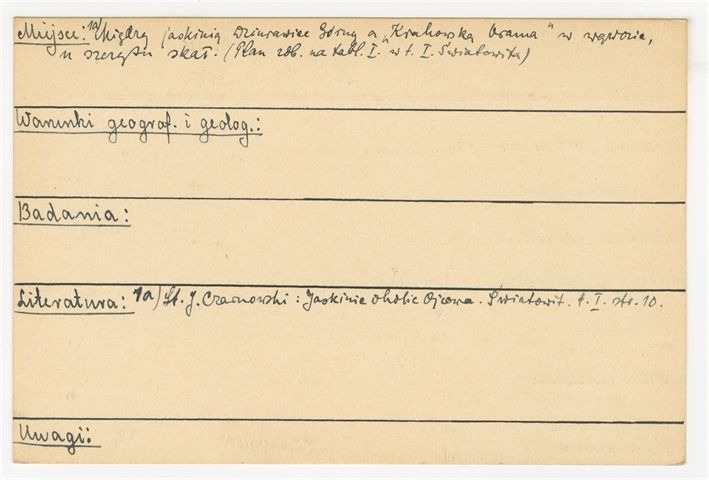 Miejsce: 1a) Między jaskinią Dziurawiec Górny a „Krakowską bramą" w wąwozie,
u szczytu skał. (Plan zob. na tabl. I. w t. I. Światowita)
Warunki geograf. i geolog.:
Badania:
Literatura: 1a) St. J. Czarnowski: Jaskinie okolic Ojcowa. Światowit. t. I. str. 10.
Uwagi: